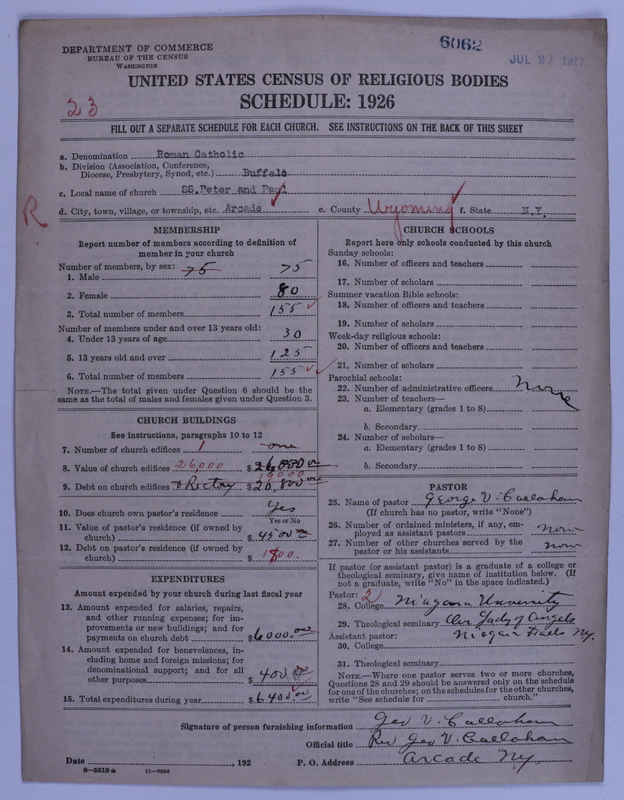 DEPARTMENT OF COMMERCE
BUREAU OF THE CENSUS
WASHINGTON
6062
JUL 21 1927
UNITED STATES CENSUS OF RELIGIOUS BODIES
23
SCHEDULE: 1926
FILL OUT A SEPARATE SCHEDULE FOR EACH CHURCH. SEE INSTRUCTIONS ON THE BACK OF THIS SHEET
a. Denomination Roman Catholic
b. Division (Association, Conference, Diocese, Presbytery, Synod, etc.) Buffalo
c. Local name of church SS.Peter and Paul
R
d. City, town, village, or township, etc. Arcade e. County Wyoming f. State N.Y.
MEMBERSHIP
Report number of members according to definition of
member in your church
Number of members, by sex: 75
1. Male 75
2. Female 80
3. Total number of members 155
Number of members under and over 13 years old:
4. Under 13 years of age 30
5. 13 years old and over 125
6. Total number of members 155
NOTE.—The total given under Question 6 should be the
same as the total of males and females given under Question 3.
CHURCH BUILDINGS
See instructions, paragraphs 10 to 12
7. Number of church edifices 1 one
8. Value of church edifices 26,000 $
9. Debt on church edifices & Rectory $ 20,800.00
10. Does church own pastor's residence Yes
Yes or No
11. Value of pastor's residence (if owned by
church) $ 4500
12. Debt on pastor's residence (if owned by
church) $
EXPENDITURES
Amount expended by your church during last fiscal year
13. Amount expended for salaries, repairs,
and other running expenses; for im-
provements or new buildings; and for
payments on church debt $ 6000.00
14. Amount expended for benevolences, in-
cluding home and foreign missions; for
denominational support; and for all
other purposes $ 400
15. Total expenditures during year $ 6400.00
CHURCH SCHOOLS
Report here only schools conducted by this church
Sunday schools:
16. Number of officers and teachers
17. Number of scholars
Summer vacation Bible schools:
18. Number of officers and teachers
19. Number of scholars
Week-day religious schools:
20. Number of officers and teachers
21. Number of scholars
Parochial schools:
22. Number of administrative officers None
23. Number of teachers—
a. Elementary (grades 1 to 8)
b. Secondary
24. Number of scholars—
a. Elementary (grades 1 to 8)
b. Secondary
PASTOR
25. Name of pastor George V. Callahan
(If church has no pastor, write "None")
26. Number of ordained ministers, if any, em-
ployed as assistant pastors none
27. Number of other churches served by the
pastor or his assistants none
If pastor (or assistant pastor) is a graduate of a college or
theological seminary, give name of institution below. (If
not a graduate, write "No" in the space indicated.)
Pastor: 2
28. College Niagara University
29. Theological seminary Our Lady of Angels
Assistant pastor: Niagara Falls N.Y.
30. College
31. Theological seminary
NOTE.—Where one pastor serves two or more churches,
Questions 28 and 29 should be answered only on the schedule
for one of the churches; on the schedules for the other churches,
write "See schedule for church."
Signature of person furnishing information Geo V. Callahan
Official title Rev Geo V. Callahan
Date , 192 P. O. Address Arcade N.Y.
8—5518a 11—9054